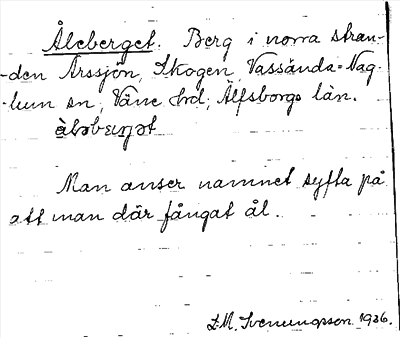 Åleberget. Berg i norra stran-
-den Årssjön, Skogen, Vassända-Nag-
-lum sn, Väne hrd, Älfsborgs län.
Man anser namnet syfta på
att man där fångat ål.
L.M. Svenungsson 1936.